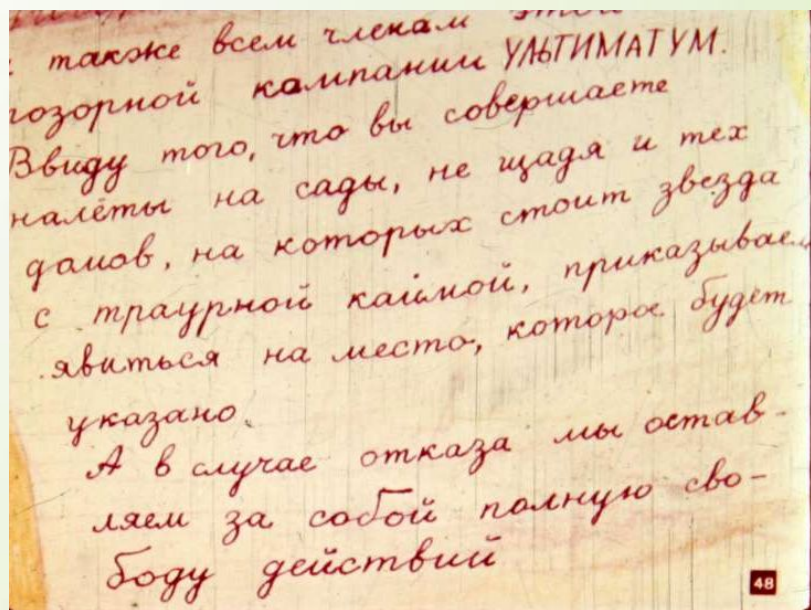 также всем членам этой
позорной кампании УЛЬТИМАТУМ.
Ввиду того, что вы совершаете
налёты на сады, не щадя и тех
домов, на которых стоит звезда
с траурной каймой, приказываем
явиться на место, которое будет
указано
А в случае отказа мы остав-
ляем за собой полную сво-
боду действий
48